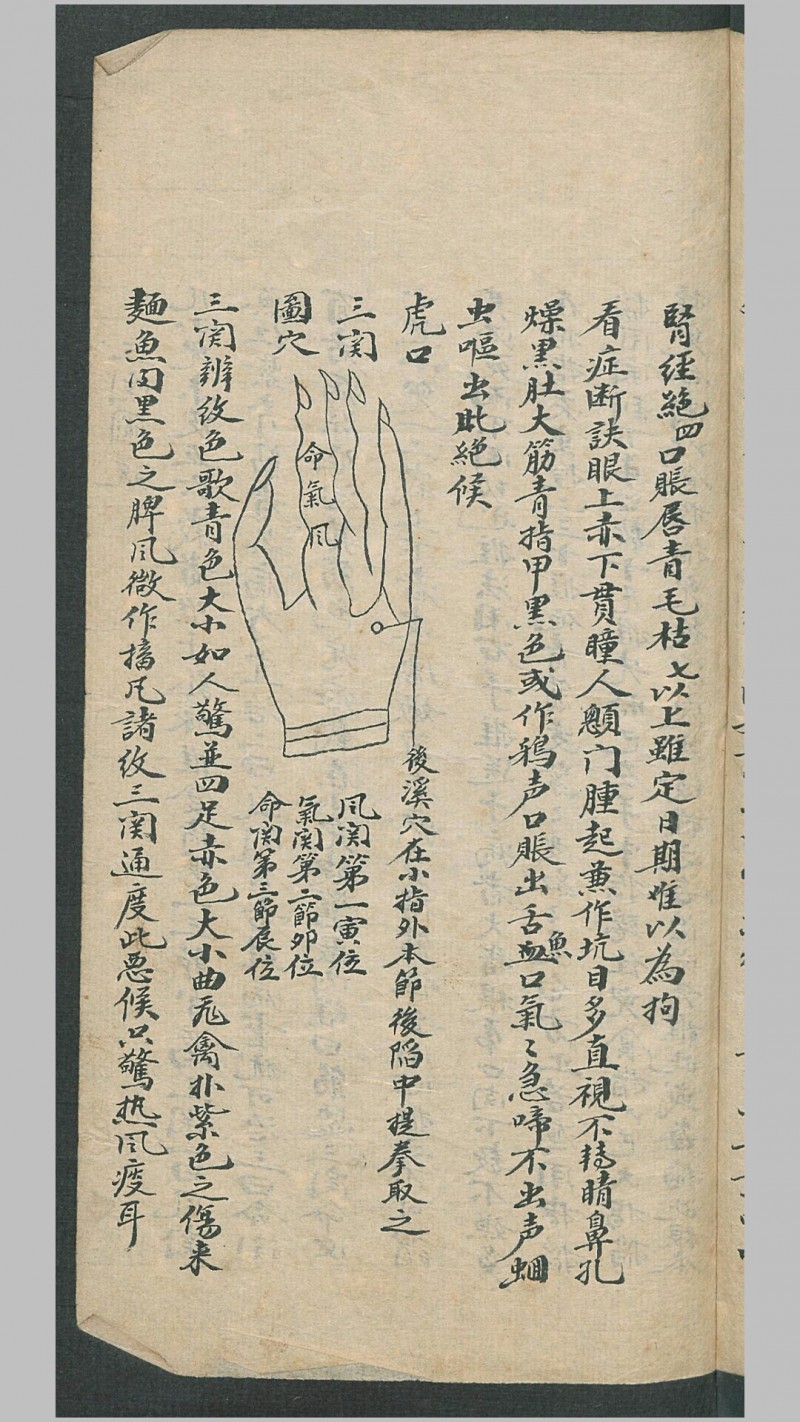 腎經絶四口賬唇青毛枯七以上雖定日期难以為拘
看症断訣眼上赤下貫瞳人顋门腫起兼作坑目多直視不轉睛鼻孔
燥黑肚大筋青指甲黑色或作鴉声口賬出舌魚血口氣〻急啼不出声蛔
虫嘔出此絶候
虎口
三関
圖穴
命氣风
後溪穴在小指外本節後陷中捉拳取之
风関第一寅位
氣関第二節卯位
命関第三節辰位
三関辨紋色歌青色大小如人驚並四足赤色大小曲飛禽扑紫色之傷来
麺魚肉黑色之脾风微作搐凡諸紋三関通度此惡候只驚热风疫耳